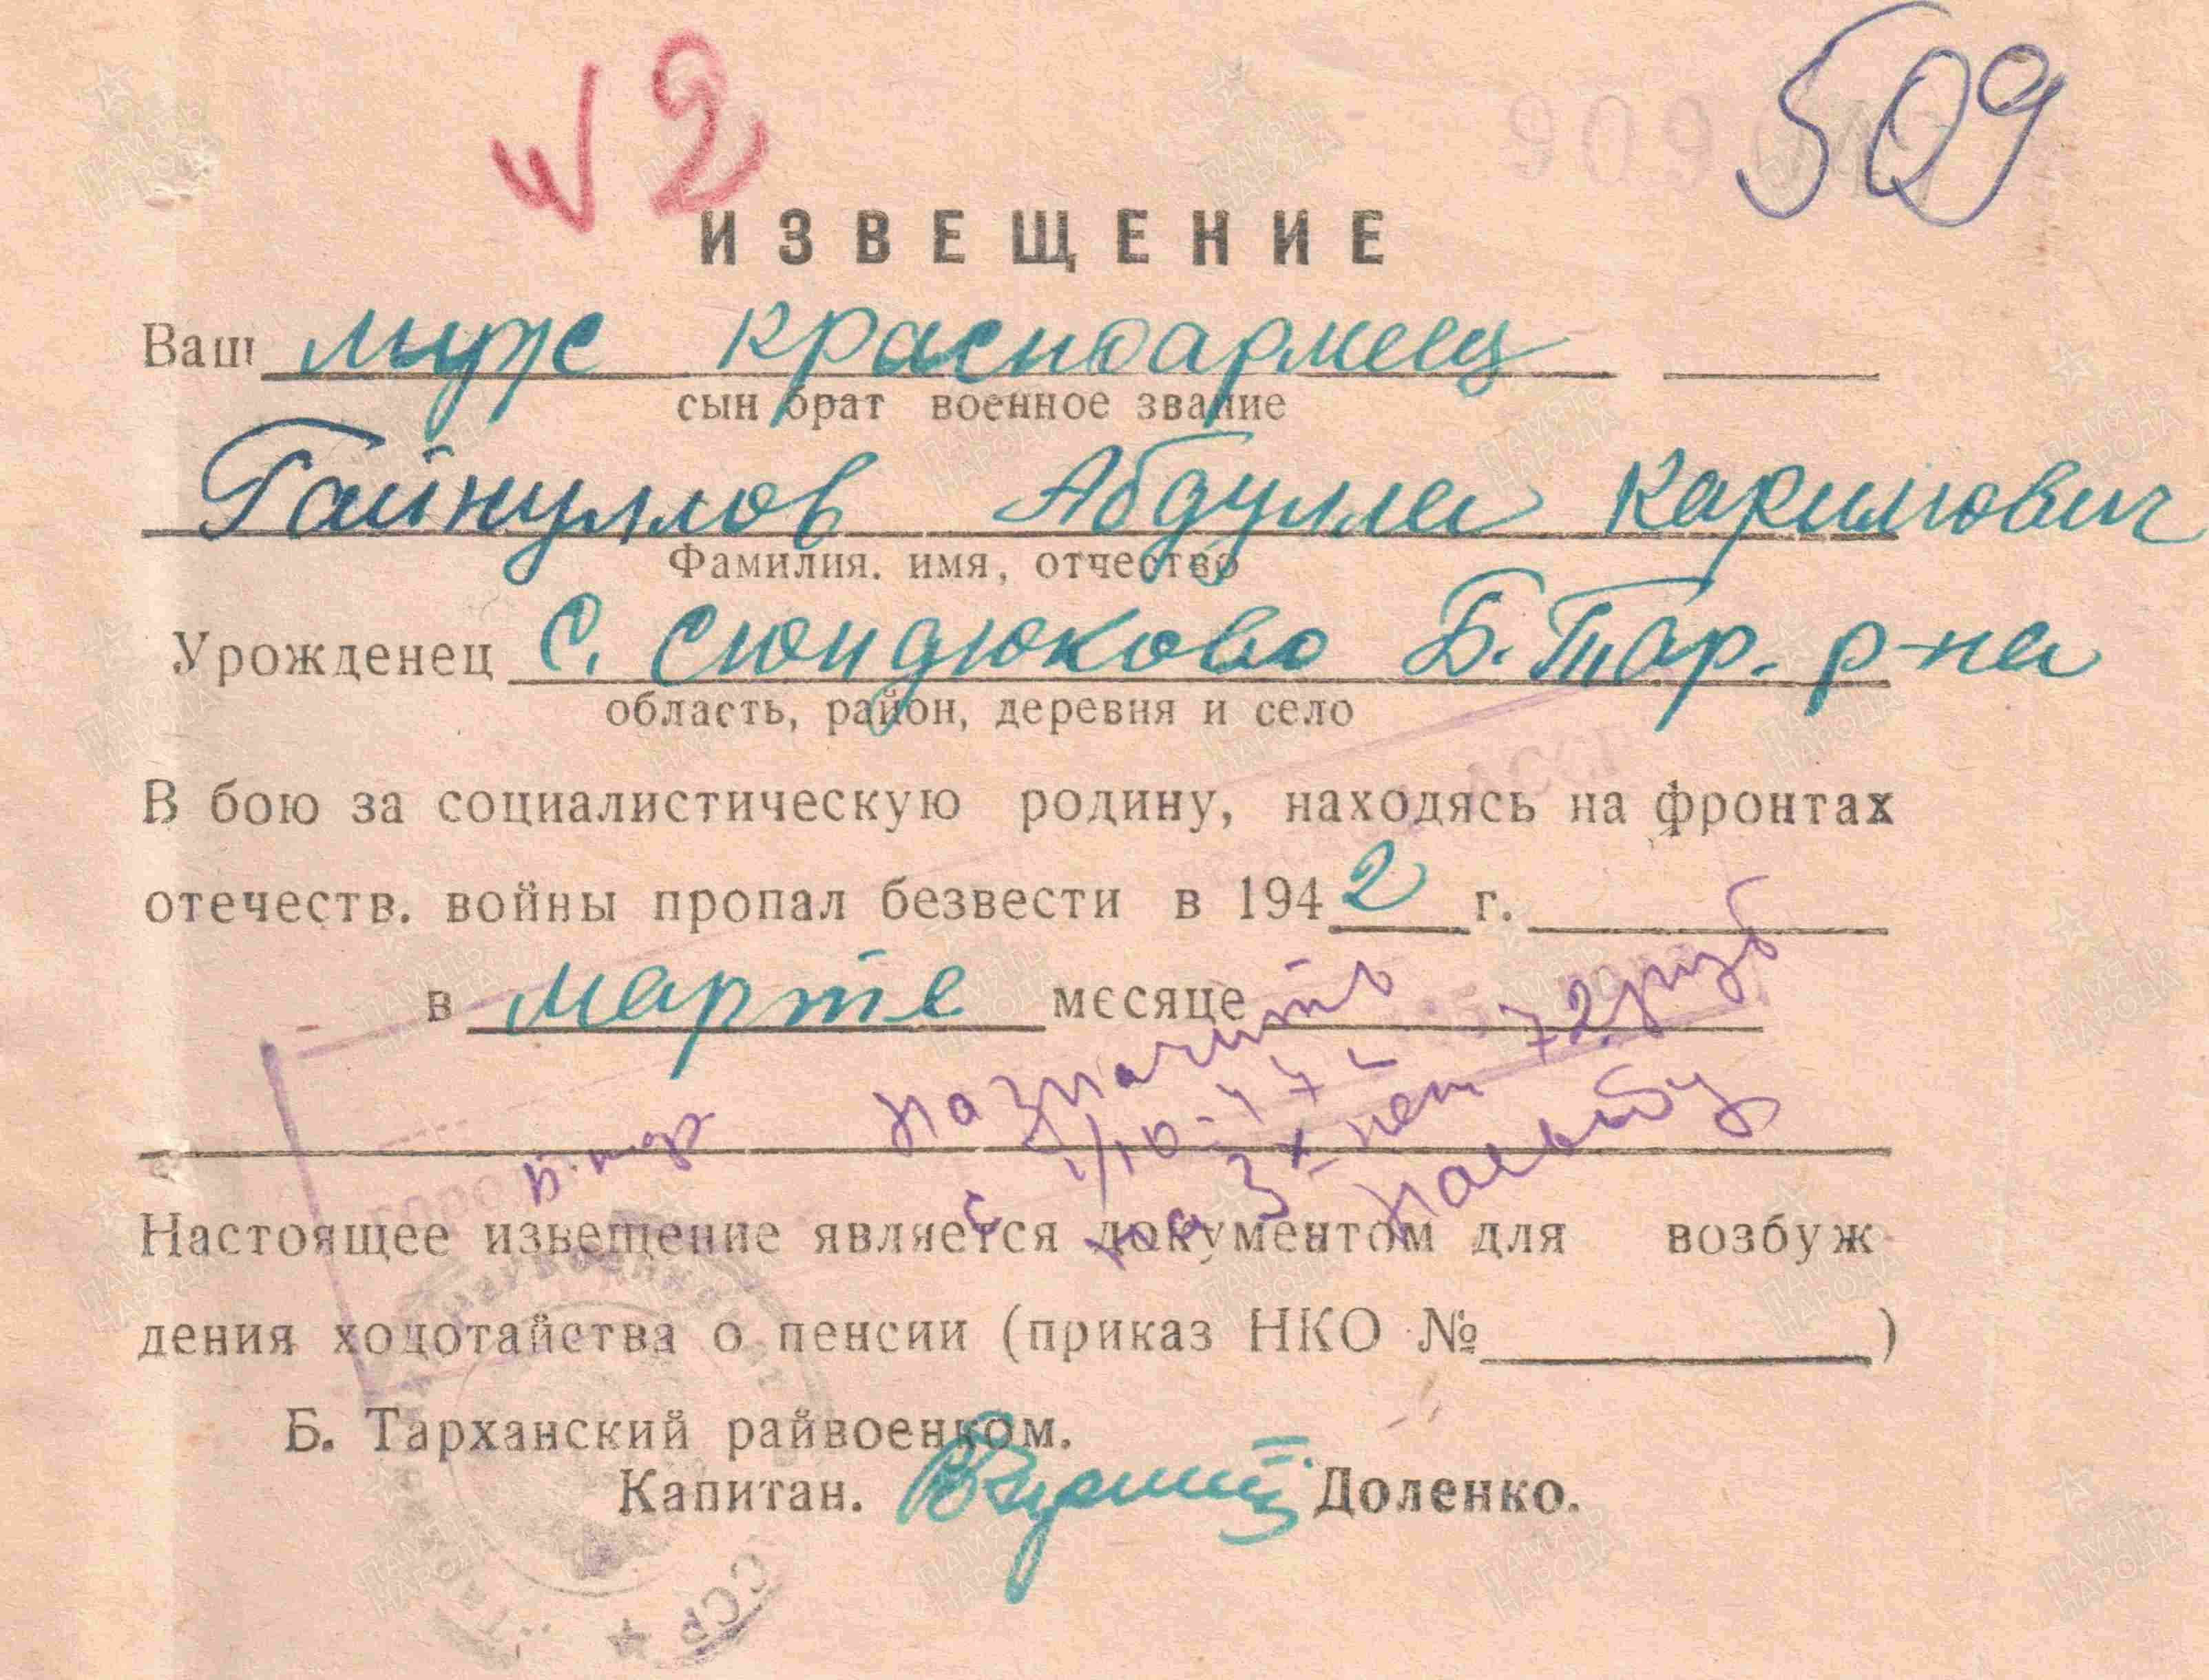 √ 2
509
ИЗВЕЩЕНИЕ
Ваш муж красноармеец
сын брат военное звание
Гайнуллов Абдулла Каримович
Фамилия. имя, отчество
Урожденец с. Сюндюково Б. Тар. р-на
область, район, деревня и село
В бою за социалистическую родину, находясь на фронтах
отечеств. войны пропал безвести в 1942 г.
в марте месяце
Назначить
с 1/10-44 г
на 3х чел 72 руб
Настоящее извещение является документом для возбуж
дения ходотайства о пенсии (приказ НКО №          )
Б. Тарханский райвоенком.
Капитан. Доленко.
ССР ★